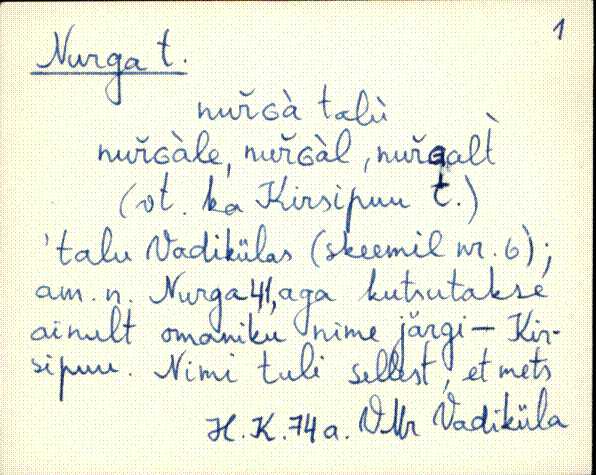 1
Nurga t.
nuřɢà talù
nuřɢàle, nuřɢàl, nuřɢalt̀
(vt. ka Kirsipuu t.)
'talu Vadikülas (skeemil nr. 6);
am. n. Nurga 41, aga kutsutakse
ainult omaniku nime järgi – Kir-
sipuu. Nimi tuli sellest, et mets
H. K. 74 a. VMr Vadiküla